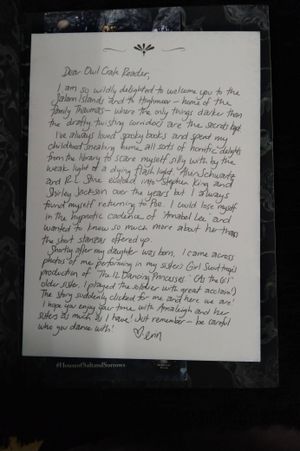 Dear Owl Crate Reader,
I am so wildly delighted to welcome you to the
Salann Islands and to Highmoor - home of the
family Thaumas - where the only things darker than
the drafty twisting corridors are the secrets kept.
I've always loved spooky books and spent my
childhood sneaking home all sorts of horrific delights
from the library to scare myself silly with by the
weak light of a dying flash light. Alvin Schwartz
and R.L. Stine evolved into Stephen King and
Shirley Jackson over the years but I always
found myself returning to Poe. I would lose myself
in the hypnotic cadence of Annabel Lee and
wanted to know so much more about her than
the short stanzas offered up.
Shortly after my daughter was born, I came across
photos of me performing in my sister's Girl Scout troop's
production of The 12 Dancing Princesses. (As the
older sister, I played the soldier with great acclaim!)
The story suddenly clicked for me and here we are!
I hope you enjoy your time with Annaleigh and her
sisters as much as I have! Just remember - be careful
who you dance with!
♡ erin
#HouseofSaltandSorrows